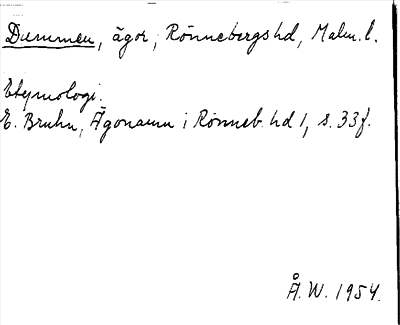 Dummen, ägor, Rönnebergs hd, Malm. l.
Etymologi.
E. Bruhn, Ägonamn i Rönneb. hd 1, s. 33f.
Å. W. 1954.